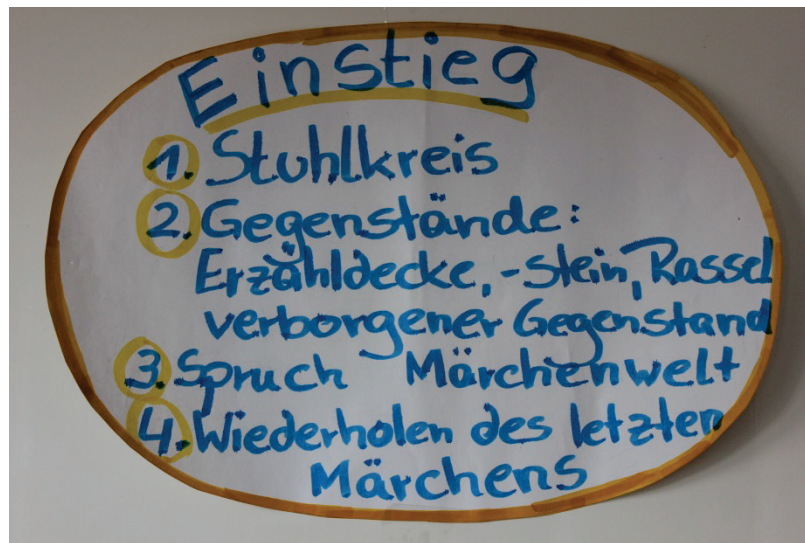 Einstieg
1. Stuhlkreis
2. Gegenstände:
Erzähldecke, -stein, Rassel
verborgener Gegenstand
3. Spruch Märchenwelt
4. Wiederholen des letzten
Märchens